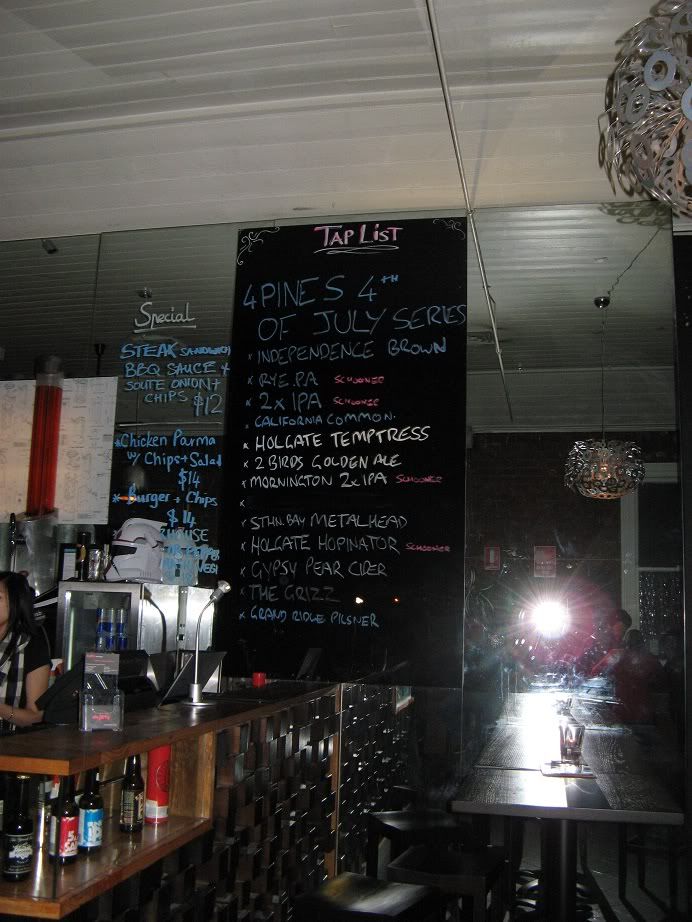 TAP LIST
4 PINES 4TH
OF JULY SERIES
x INDEPENDENCE BROWN
x RYE PA SCHOONER
x 2x IPA SCHOONER
x CALIFORNIA COMMON.
x HOLGATE TEMPTRESS
x 2 BIRDS GOLDEN ALE
x MORNINGTON 2x IPA SCHOONER
x
x STHN. BAY METALHEAD
x HOLGATE HOPINATOR SCHOONER
x GYPSY PEAR CIDER
x THE GRIZZ
x GRAND RIDGE PILSNER
Special
STEAK SANDWICH
BBQ SAUCE +
SOUTE ONION +
CHIPS $12
*Chicken Parma
w/ Chips + Salad
$14
* Burger + Chips
$14
HOUSE